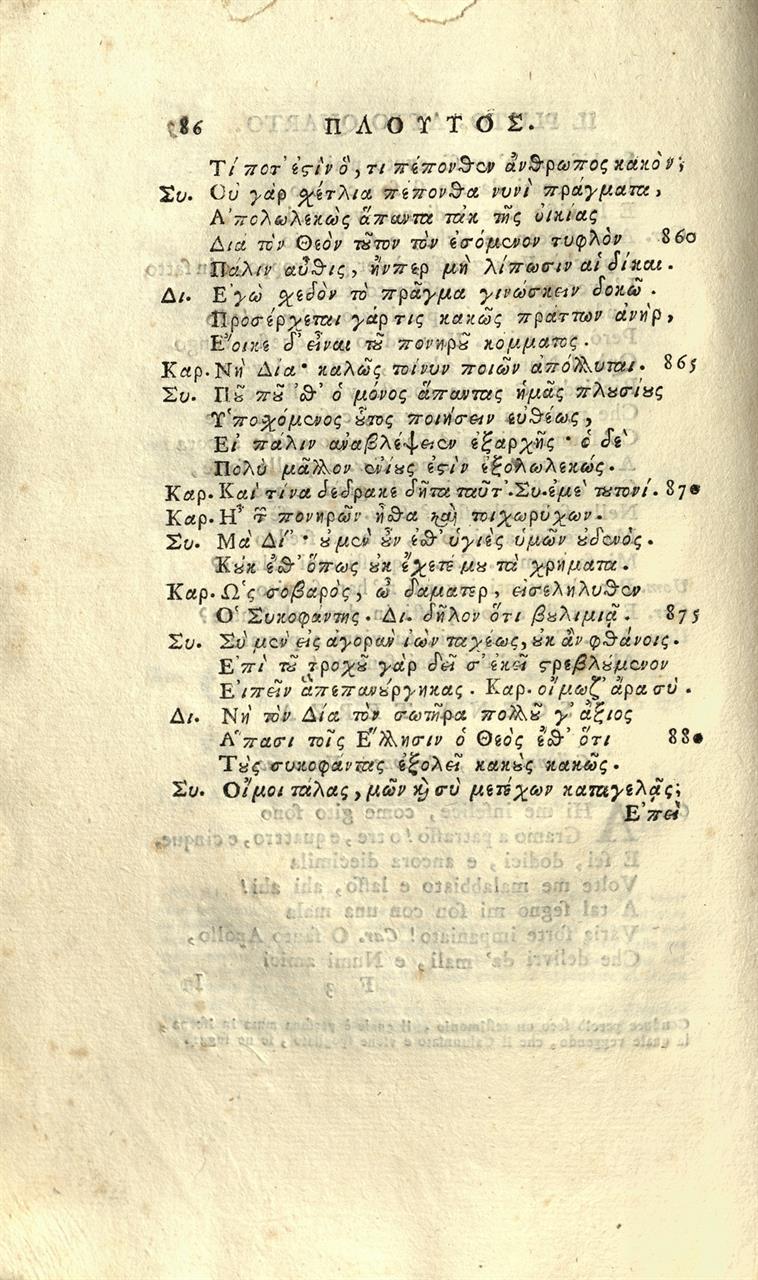 86 ΠΛΟΥΤΟΣ.
Τί ποτ' ἐςὶν ὅ, τι πέπονθεν ἄνθρωπος κακὸν;
Συ. Οὐ γὰρ χέτλια πέπονθα νυνὶ πράγματα,
Α'πολωλεκὼς ἅπαντα τἀκ τῆς οἰκίας
Διὰ τὸν Θεὸν τȣ̃τον τὸν ἐσόμενον τυφλὸν 860
Πάλιν αὖθις, ἤνπερ μὴ λίπωσιν αἱ δίκαι.
Δι. Ε'γὼ χεδὸν τὸ πρᾶγμα γινώσκειν δοκῶ.
Προσέρχεται γάρ τις κακῶς πράττων ἀνὴρ,
Ε'́οικε δ' εἶναι τȣ̃ πονηρȣ̃ κόμματος.
Καρ. Νὴ Δία· καλῶς τοίνυν ποιῶν ἀπόλλυται. 865
Συ. Πȣ̃ πȣ̃ 'θ' ὁ μόνος ἅπαντας ἡμᾶς πλȣσίȣς
Υ'ποχόμενος ȣ̃̔τος ποιήσειν εὐθέως,
Εἰ πάλιν ἀναβλέψειεν ἐξαρχῆς· ὁ δὲ
Πολὺ μᾶλλον ἐνίȣς ἐςὶν ἐξολωλεκώς.
Καρ. Καὶ τίνα δέδρακε δῆτα ταῦτ'. Συ. ἐμὲ τȣτονί. 870
Καρ. Η῏ τ̃ πονηρῶν ἦθα καὶ τοιχωρύχων.
Συ. Μὰ Δί'· ȣ̓ μὲν ȣ̓̃ν ἐθ' ὑγιὲς ὑμῶν ȣ̓δενὸς.
Κȣ̓κ ἔθ' ὅπως ȣ̓κ ἔχετέ μȣ τὰ χρήματα.
Καρ. Ω῾ς σοβαρὸς, ὦ δάματερ, εἰσελήλυθεν
Ο῾ Συκοφάντης. Δι. δῆλον ὅτι βȣλιμιᾷ. 875
Συ. Σὺ μὲν εἰς ἀγορὰν ἰὼν ταχέως, ȣ̓κ ἂν φθάνοις.
Ε'πὶ τȣ̃ τροχȣ̃ γὰρ δεῖ σ' ἐκεῖ ςρεβλȣ́μενον
Εἰπεῖν ἃ πεπανȣ́ργηκας. Καρ. οἴμωζ' ἄρα σύ.
Δι. Νὴ τὸν Δία τὸν σωτῆρα πολλȣ̃ γ' ἄξιος
Α῞πασι τοῖς Ε῞λλησιν ὁ Θεὸς ἔθ' ὅτι 880
Τȣ̀ς συκοφάντας ἐξολεῖ κακȣ̀ς κακῶς.
Συ. Οἴμοι τάλας, μῶν καὶ σὺ μετέχων καταγελᾷς;
Ε'πεὶ